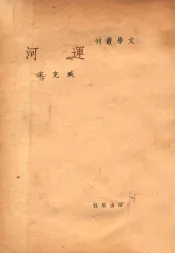 文學叢刊
運河
臧克家